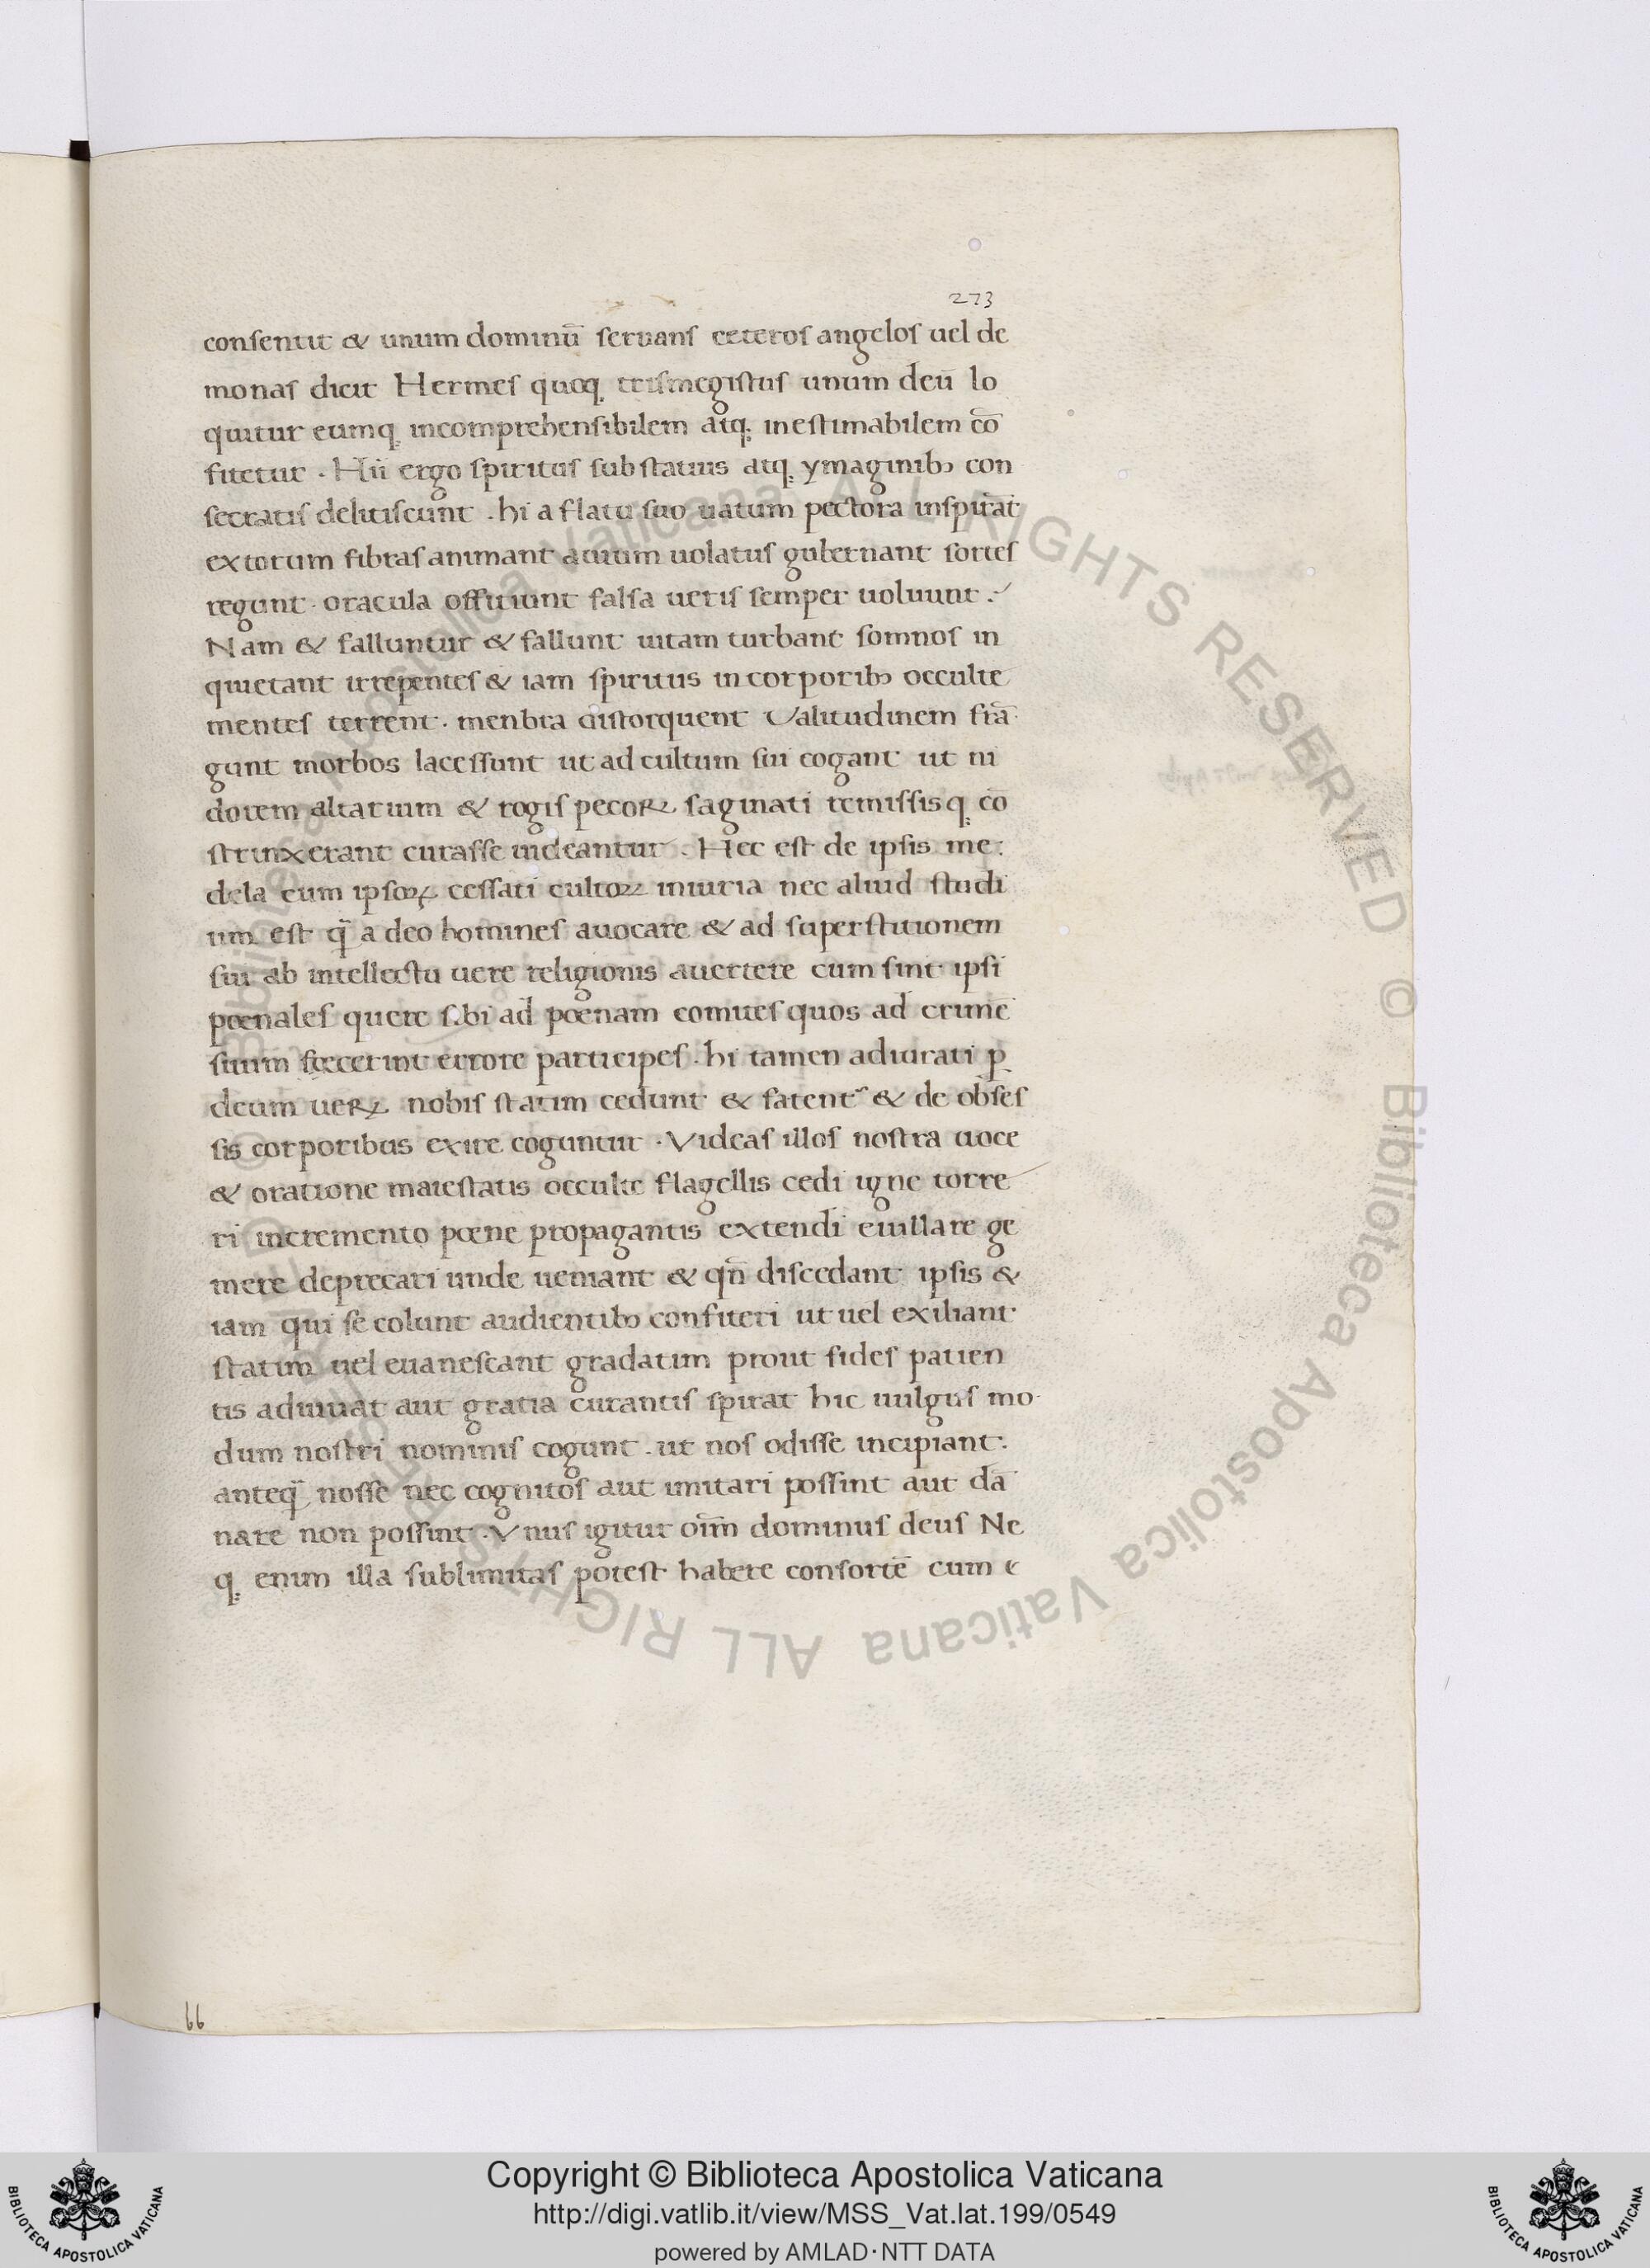 273
consentit & unum dominū seruans ceteros angelos uel de
monas dicit Hermes quoq; trismegistus unum deū lo
quitur eumq; incomprehensibilem atq; inestimabilem cō
fitetur . Hii ergo spiritus sub statuis atq; ymaginibꝫ con
secratis delitiscunt . hi a flatu suo uatum pectora inspirāt
extorum fibras animant auium uolatus gubernant sortes
regunt . oracula officiunt falsa ueris semper uoluunt .
Nam & falluntur & fallunt uitam turbant somnos in
quietant irrepentes & iam spiritus in corporibꝫ occulte
mentes terrent . menbra distorquent Ualitudinem frā
gunt morbos lacessunt ut ad cultum sui cogant ut ni
dorem altarium & rogis pecoꝝ saginati remissisq; cō
strinxerant curasse uideantur . Hec est de ipsis me
dela cum ipsoꝝ cessati cultoꝝ iniuria nec aliud studi
um est q̄ a deo homines auocare & ad superstitionem
sui ab intellectu uere religionis auertere cum sint ipsi
poenales quere sibi ad poenam comites quos ad crimē
suum foecerint errore participes . hi tamen adiurati ꝑ
deum ueꝝ nobis statim cedunt & fatent᷑ & de obses
sis corporibus exire coguntur . Videas illos nostra uoce
& oratione maiestatis occulte flagellis cedi igne torre
ri incremento poene propagantis extendi eiullare ge
mere deprecari unde ueniant & qn̄ discedant ipsis &
iam qui se colunt audientibꝫ confiteri ut uel exiliant
statim uel euanescant gradatim prout fides patien
tis adiuuat aut gratia curantis spirat hic uulgus mo
dum nostri nominis cogunt . ut nos odisse incipiant .
anteq̄ nosse nec cognitos aut imitari possint aut dā
nare non possint . Vnus igitur oīm dominus deus Ne
q; enim illa sublimitas potest habere consortē cum
66
Biblioteca Apostolica Vaticana ALL RIGHTS RESERVED ©
Copyright © Biblioteca Apostolica Vaticana
http://digi.vatlib.it/view/MSS_Vat.lat.199/0549
powered by AMLAD·NTT DATA
BIBLIOTECA APOSTOLICA VATICANA
BIBLIOTECA APOSTOLICA VATICANA